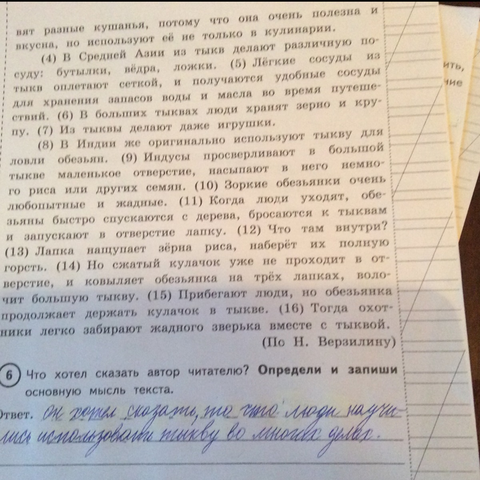 вят разные кушанья, потому что она очень полезна и
вкусна, но используют её не только в кулинарии.
(4) В Средней Азии из тыкв делают различную по-
суду: бутылки, вёдра, ложки. (5) Лёгкие сосуды из
тыкв оплетают сеткой, и получаются удобные сосуды
для хранения запасов воды и масла во время путеше-
ствий. (6) В больших тыквах люди хранят зерно и кру-
пу. (7) Из тыквы делают даже игрушки.
(8) В Индии же оригинально используют тыкву для
ловли обезьян. (9) Индусы просверливают в большой
тыкве маленькое отверстие, насыпают в него немно-
го риса или других семян. (10) Зоркие обезьянки очень
любопытные и жадные. (11) Когда люди уходят, обе-
зьяны быстро спускаются с дерева, бросаются к тыквам
и запускают в отверстие лапку. (12) Что там внутри?
(13) Лапка нащупает зёрна риса, наберёт их полную
горсть. (14) Но сжатый кулачок уже не проходит в от-
верстие, и ковыляет обезьянка на трёх лапках, воло-
чит большую тыкву. (15) Прибегают люди, но обезьянка
продолжает держать кулачок в тыкве. (16) Тогда охот-
ники легко забирают жадного зверька вместе с тыквой.
(По Н. Верзилину)
6 Что хотел сказать автор читателю? Определи и запиши
основную мысль текста.
Ответ. он хотел сказать, то что люди научи-
лись использовать тыкву во многих делах.
ить,
ние